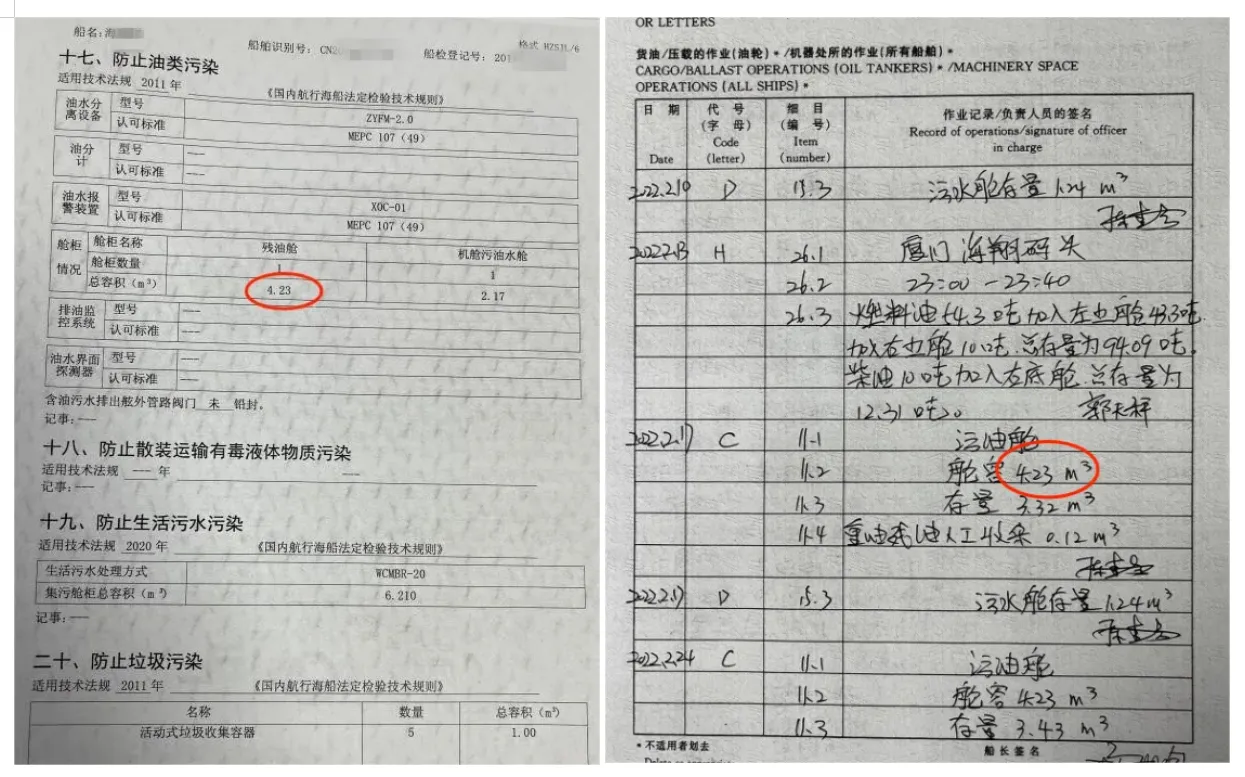 船名:海
船舶识别号:CN20
船检登记号:201
格式 HZSJL/6
十七、防止油类污染
适用技术法规 2011 年 《国内航行海船法定检验技术规则》
油水分离设备 型号 ZYFM-2.0
认可标准 MEPC 107(49)
油分计 型号 ---
认可标准 ---
油水报警装置 型号 XOC-01
认可标准 MEPC 107(49)
舱柜情况 舱柜名称 残油舱 机舱污油水舱
舱柜数量 1 1
总容积(m³) 4.23 2.17
排油监控系统 型号 ---
认可标准 ---
油水界面探测器 型号 ---
认可标准 ---
含油污水排出舷外管路阀门 未 铅封。
记事:---
十八、防止散装运输有毒液体物质污染
适用技术法规 --- 年 ---
记事:---
十九、防止生活污水污染
适用技术法规 2020 年 《国内航行海船法定检验技术规则》
生活污水处理方式 WCMBR-20
集污舱柜总容积(m³) 6.210
记事:---
二十、防止垃圾污染
适用技术法规 2011 年 《国内航行海船法定检验技术规则》
名称 数量 总容积(m³)
活动式垃圾收集容器 5 1.00
OR LETTERS
货油/压载的作业(油轮)*/机器处所的作业(所有船舶)*
CARGO/BALLAST OPERATIONS (OIL TANKERS)*/MACHINERY SPACE
OPERATIONS (ALL SHIPS)*
日 期 代 号 细 目 作业记录/负责人员的签名
(字 母) (编 号) Record of operations/signature of officer
Code Item in charge
Date (letter) (number)
D 15.3 污水舱存量 1.24 m³
H 26.1 厦门海翔码头
26.2 23:00 - 23:40
26.3 燃料油54.3吨加入左边舱43.3吨
加入右边舱10吨.总存量为94.09吨。
柴油10吨加入左底舱.总存量为
12.31吨。
2022.2.17 C 11.1 污油舱
11.2 舱容 4.23 m³
11.3 存量 3.32 m³
11.4 重油残油人工收集 0.12 m³
2022.2.17 D 15.3 污水舱存量 1.24 m³
2022.2.24 C 11.1 污油舱
11.2 舱容 4.23 m³
11.3 存量 3.43 m³
*不适用者划去 船长签名